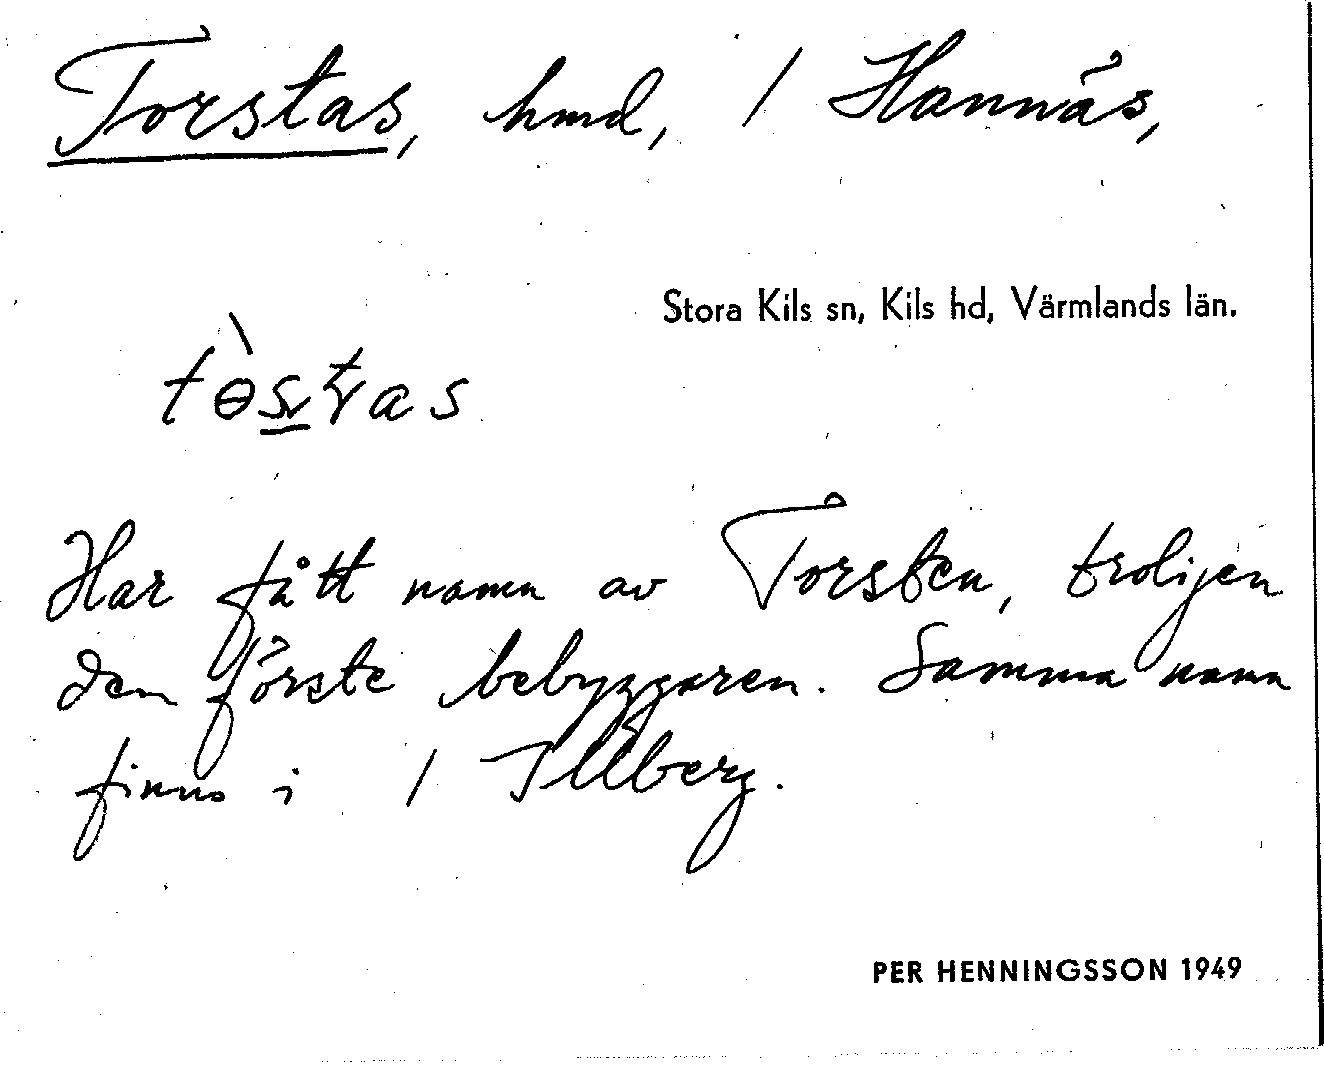 Torstas, hmd, / Hannäs,
Stora Kils sn, Kils hd, Värmlands län.
Har fått namn av Torsten, troligen
den förste bebyggaren. Samma namn
finns i / Illberg.
PER HENNINGSSON 1949